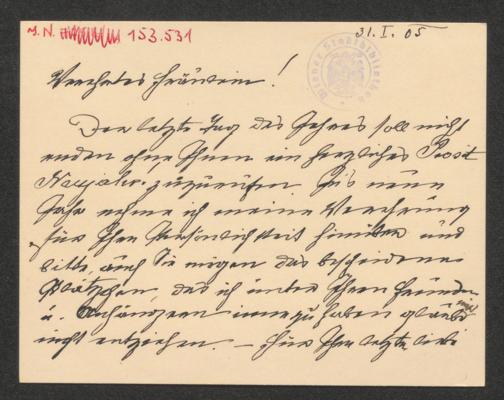 J. N. 153.531
31. I. 05
Wiener Stadtbibliothek
Verehrtes Fräulein!
Der letzte Tag des Jahres soll nicht
enden ohne Ihnen ein herzliches Prosit
Neujahr zuzurufen. Ins neue
Jahr nehme ich meine Verehrung
für Ihre Persönlichkeit hinüber und
bitte, auch Sie mögen das bescheidene
Plätzchen, das ich unter Ihren Freunden
u. Anhängern innezuhaben glaube mir
nicht entziehen. – Für Ihre letzte liebe